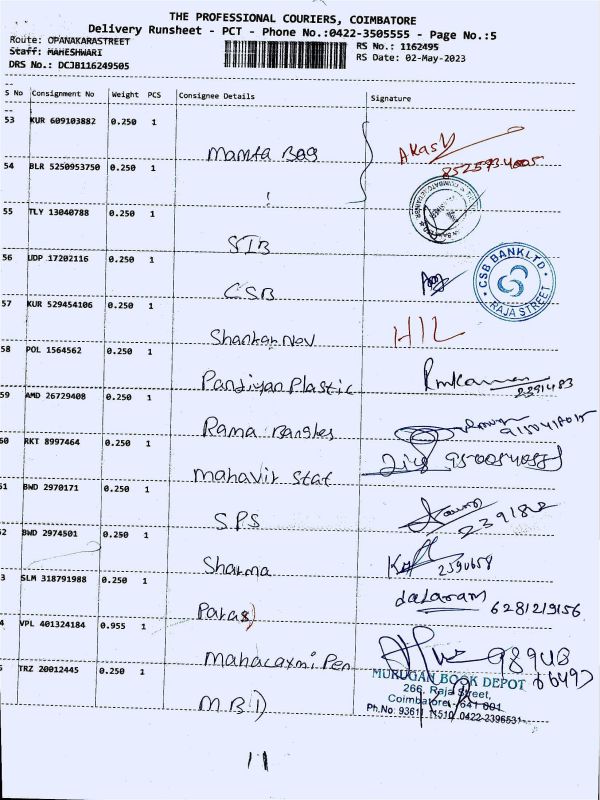 THE PROFESSIONAL COURIERS, COIMBATORE
Delivery Runsheet - PCT - Phone No.:0422-3505555 - Page No.:5
Route: OPANAKARASTREET
Staff: MAHESHWARI
DRS No.: DCJB116249505
RS No.: 1162495
RS Date: 02-May-2023
S No Consignment No Weight PCS Consignee Details Signature
53 KUR 609103882 0.250 1 Mamta Bag Akash
8525934005
54 BLR 5250953750 0.250 1
55 TLY 13040788 0.250 1 SIB
56 UDP 17202116 0.250 1 CSB
CSB BANK LTD
RAJA STREET
57 KUR 529454106 0.250 1 Shankar Nov HIL
58 POL 1564562 0.250 1 Pandiyan Plastic
2391483
59 AMD 26729408 0.250 1 Rama Bangles
60 RKT 8997464 0.250 1 Mahavir Stat
61 BWD 2970171 0.250 1 SPS
62 BWD 2974501 0.250 1 Sharma
3 SLM 318791988 0.250 1 Paras 6281219156
4 VPL 401324184 0.955 1 Mahalaxmi Pen
5 TRZ 20012445 0.250 1 M.B.D
MURUGAN BOOK DEPOT
266, Raja Street,
Coimbatore - 641 001
Ph.No: 93611 11510, 0422-2396531